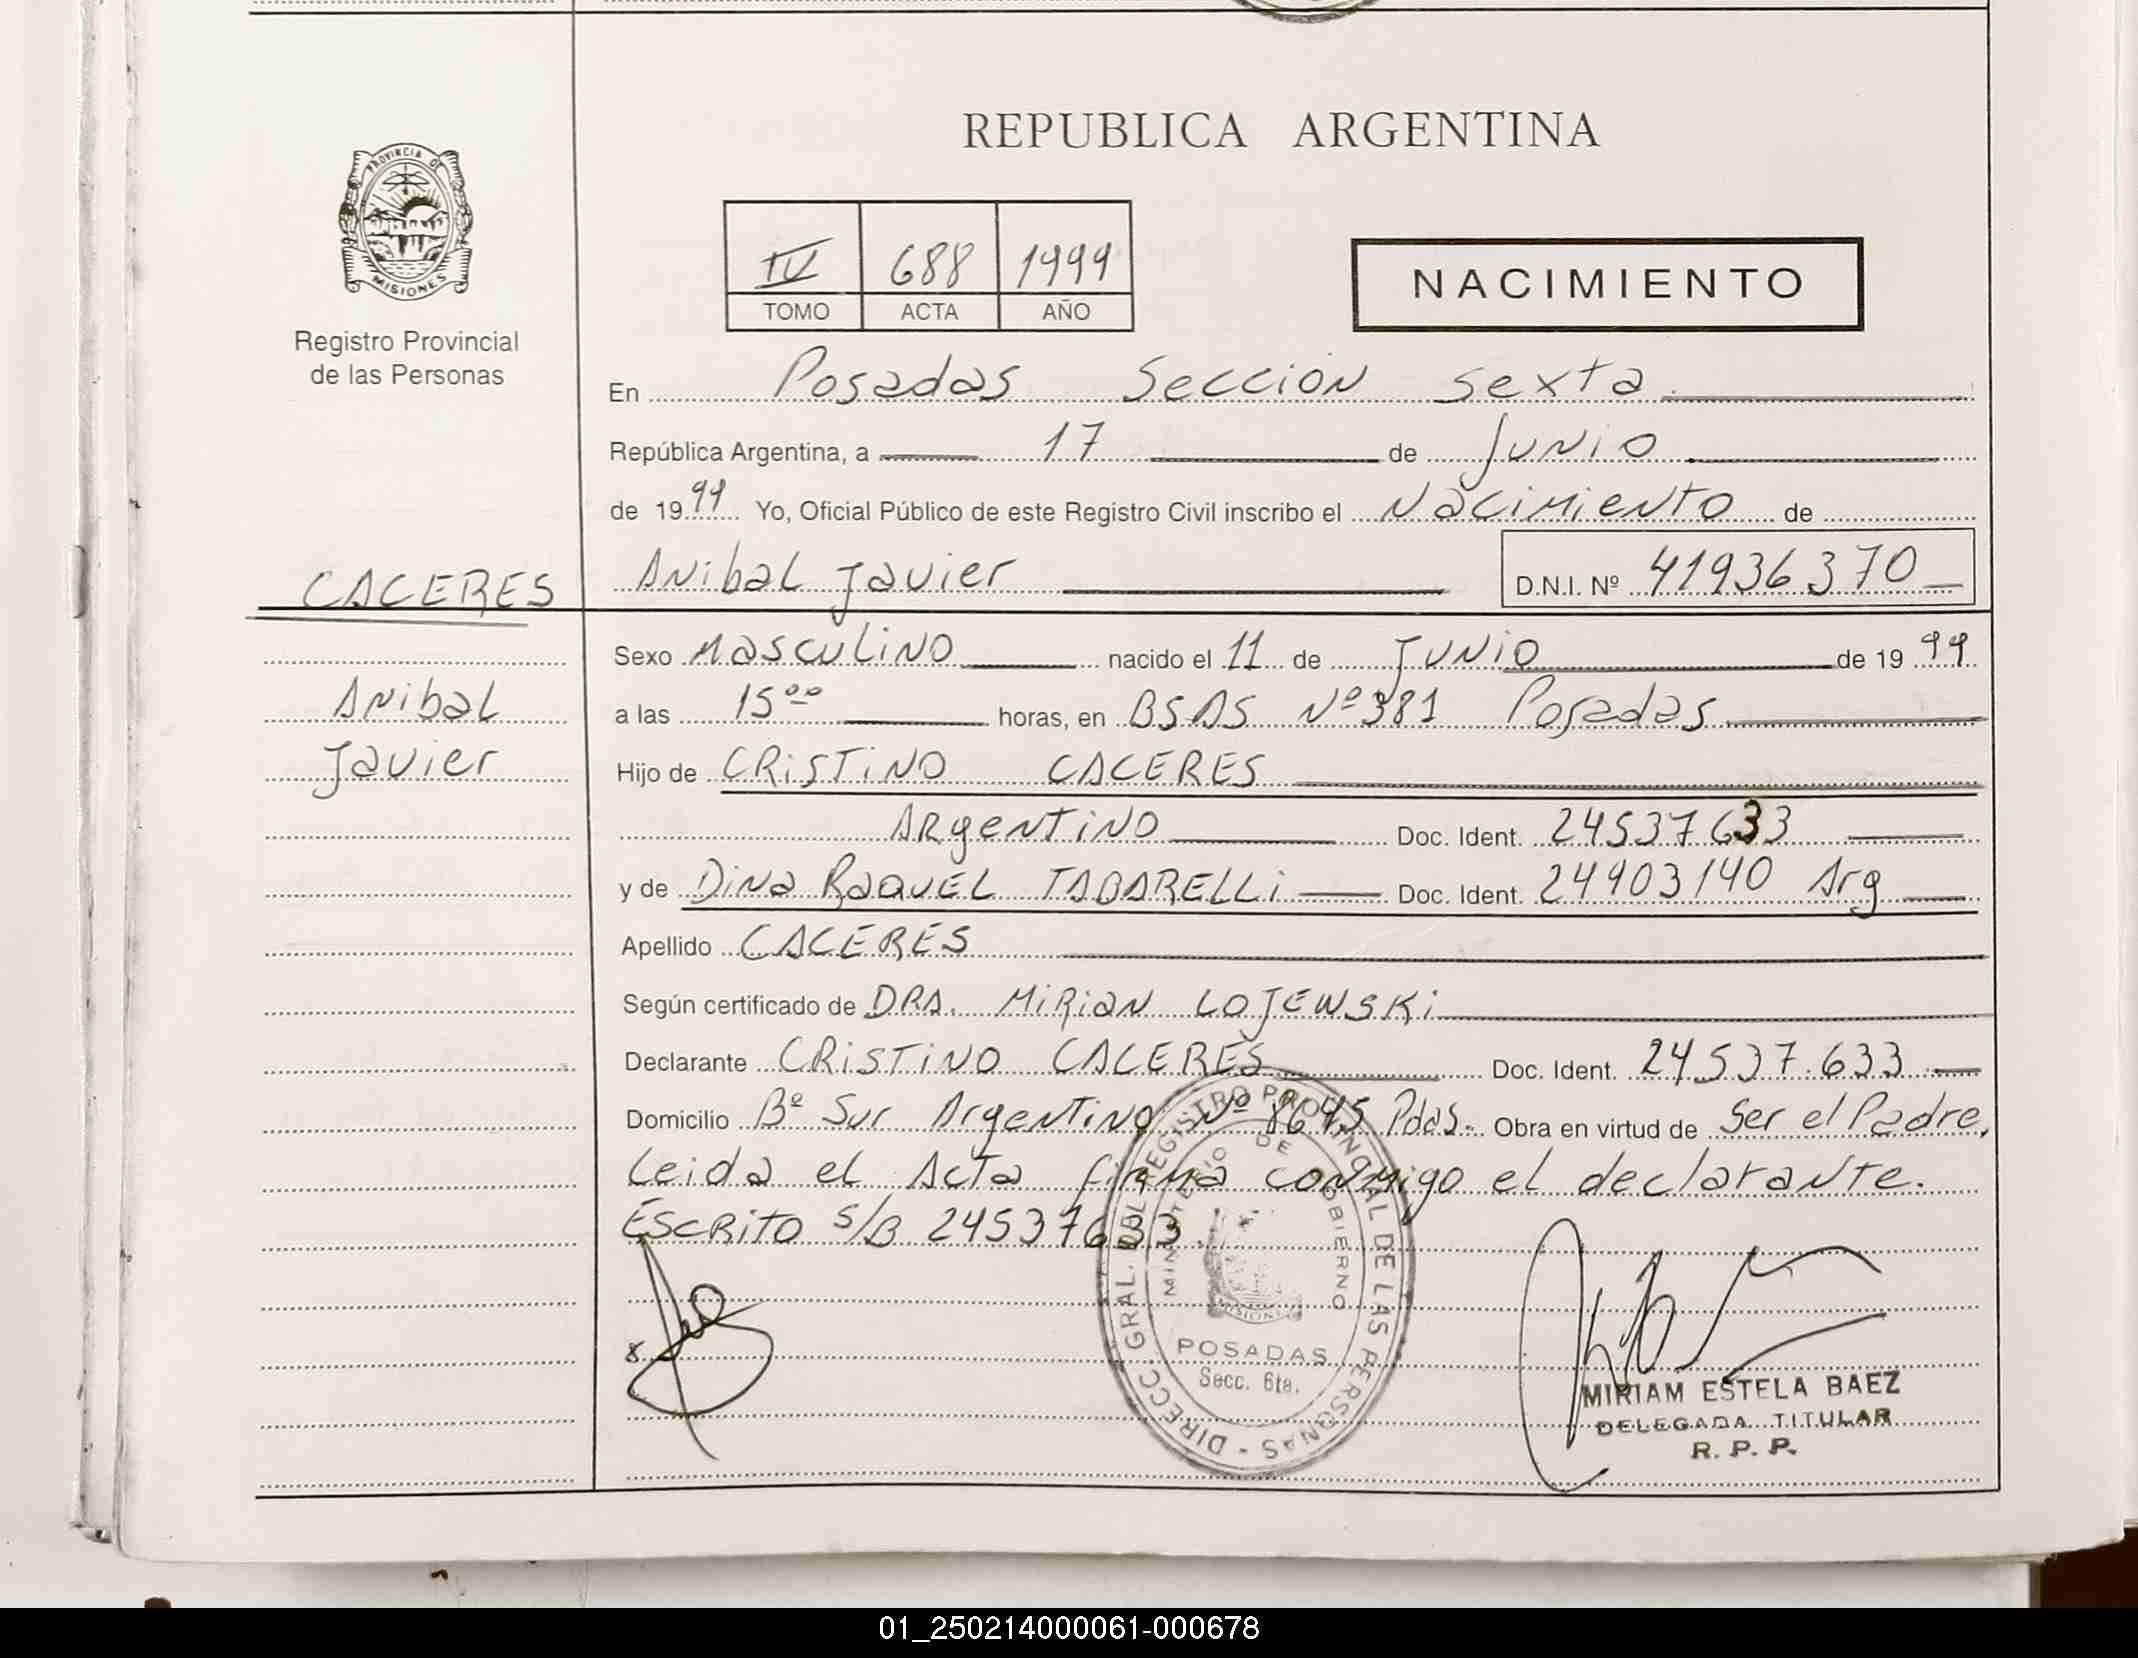 REPUBLICA ARGENTINA
PROVINCIA DE
MISIONES
Registro Provincial
de las Personas
IV 688 1999
TOMO ACTA AÑO
NACIMIENTO
En Posadas Sección Sexta
República Argentina, a 17 de Junio
de 1999 Yo, Oficial Público de este Registro Civil inscribo el Nacimiento de
CACERES
Anibal Javier D.N.I. Nº 41936370
Sexo Masculino nacido el 11 de Junio de 1999
Anibal
a las 15ºº horas, en BSAS Nº 381 Posadas
Javier
Hijo de CRISTINO CACERES
Argentino Doc. Ident. 24537633
y de Dina Raquel TABARELLI Doc. Ident. 24903140 Arg
Apellido CACERES
Según certificado de DRA. MIRIAN LOJEWSKI
Declarante CRISTINO CACERES Doc. Ident. 24537.633
Domicilio Bº Sur Argentino Nº 8645 Pdas. Obra en virtud de Ser el Padre,
Leida el Acta firma conmigo el declarante.
Escrito S/B 24537633.
DIRECC. GRAL. DEL REGISTRO PROVINCIAL DE LAS PERSONAS -
MINISTERIO DE GOBIERNO
MISIONES
POSADAS
Secc. 6ta.
MIRIAM ESTELA BAEZ
DELEGADA TITULAR
R. P. P.
01_250214000061-000678